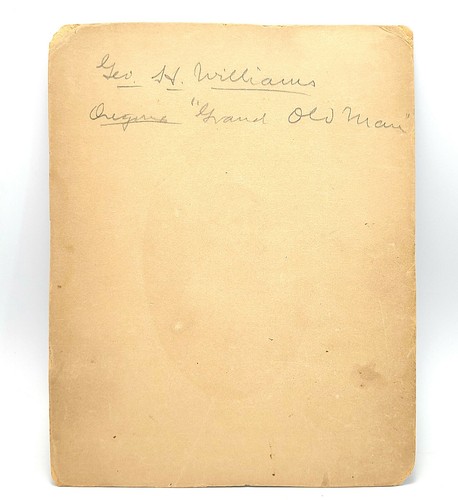 Geo. H. Williams
Oregon's "Grand Old Man"